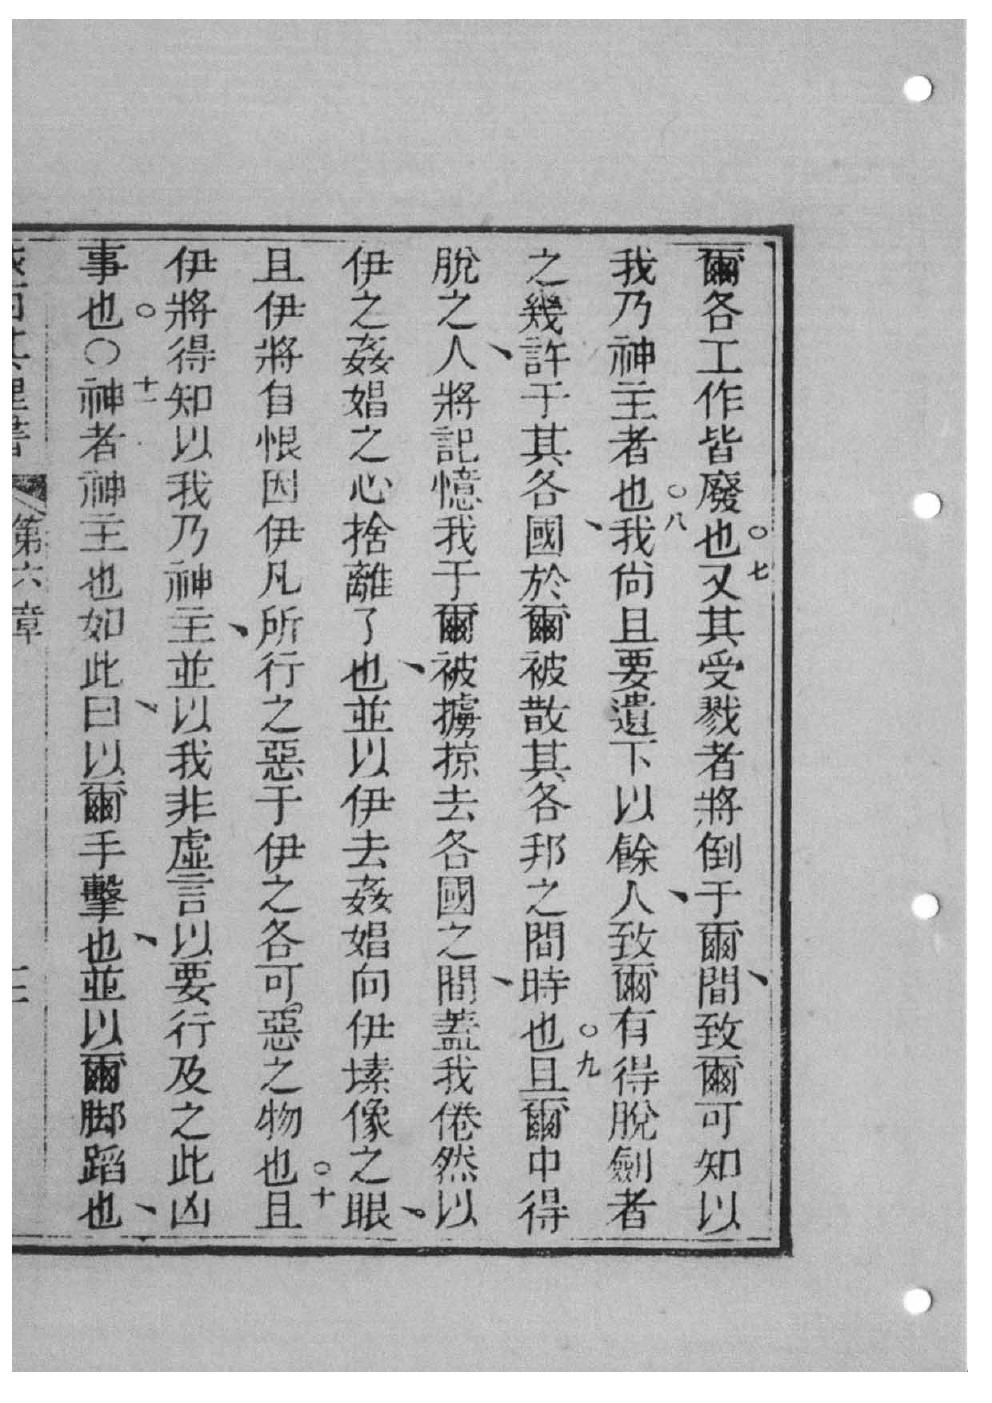 爾各工作皆廢也○七又其受戮者將倒于爾間、致爾可知以
我乃神主者也○八我尚且要遺下以餘人、致爾有得脫劍者
之幾許于其各國、於爾被散其各邦之間時也○九且爾中得
脫之人、將記憶我于爾被擄掠去各國之間、蓋我倦然以
伊之姦娼之心捨離了也、並以伊去姦娼向伊嗉像之眼。
且伊將自恨因伊凡所行之惡于伊之各可惡之物也○十且
伊將得知以我乃神主、並以我非虛言以要行及之此凶
事也○〇十一神者神主也如此曰、以爾手擊也、並以爾脚蹈也、
第六章